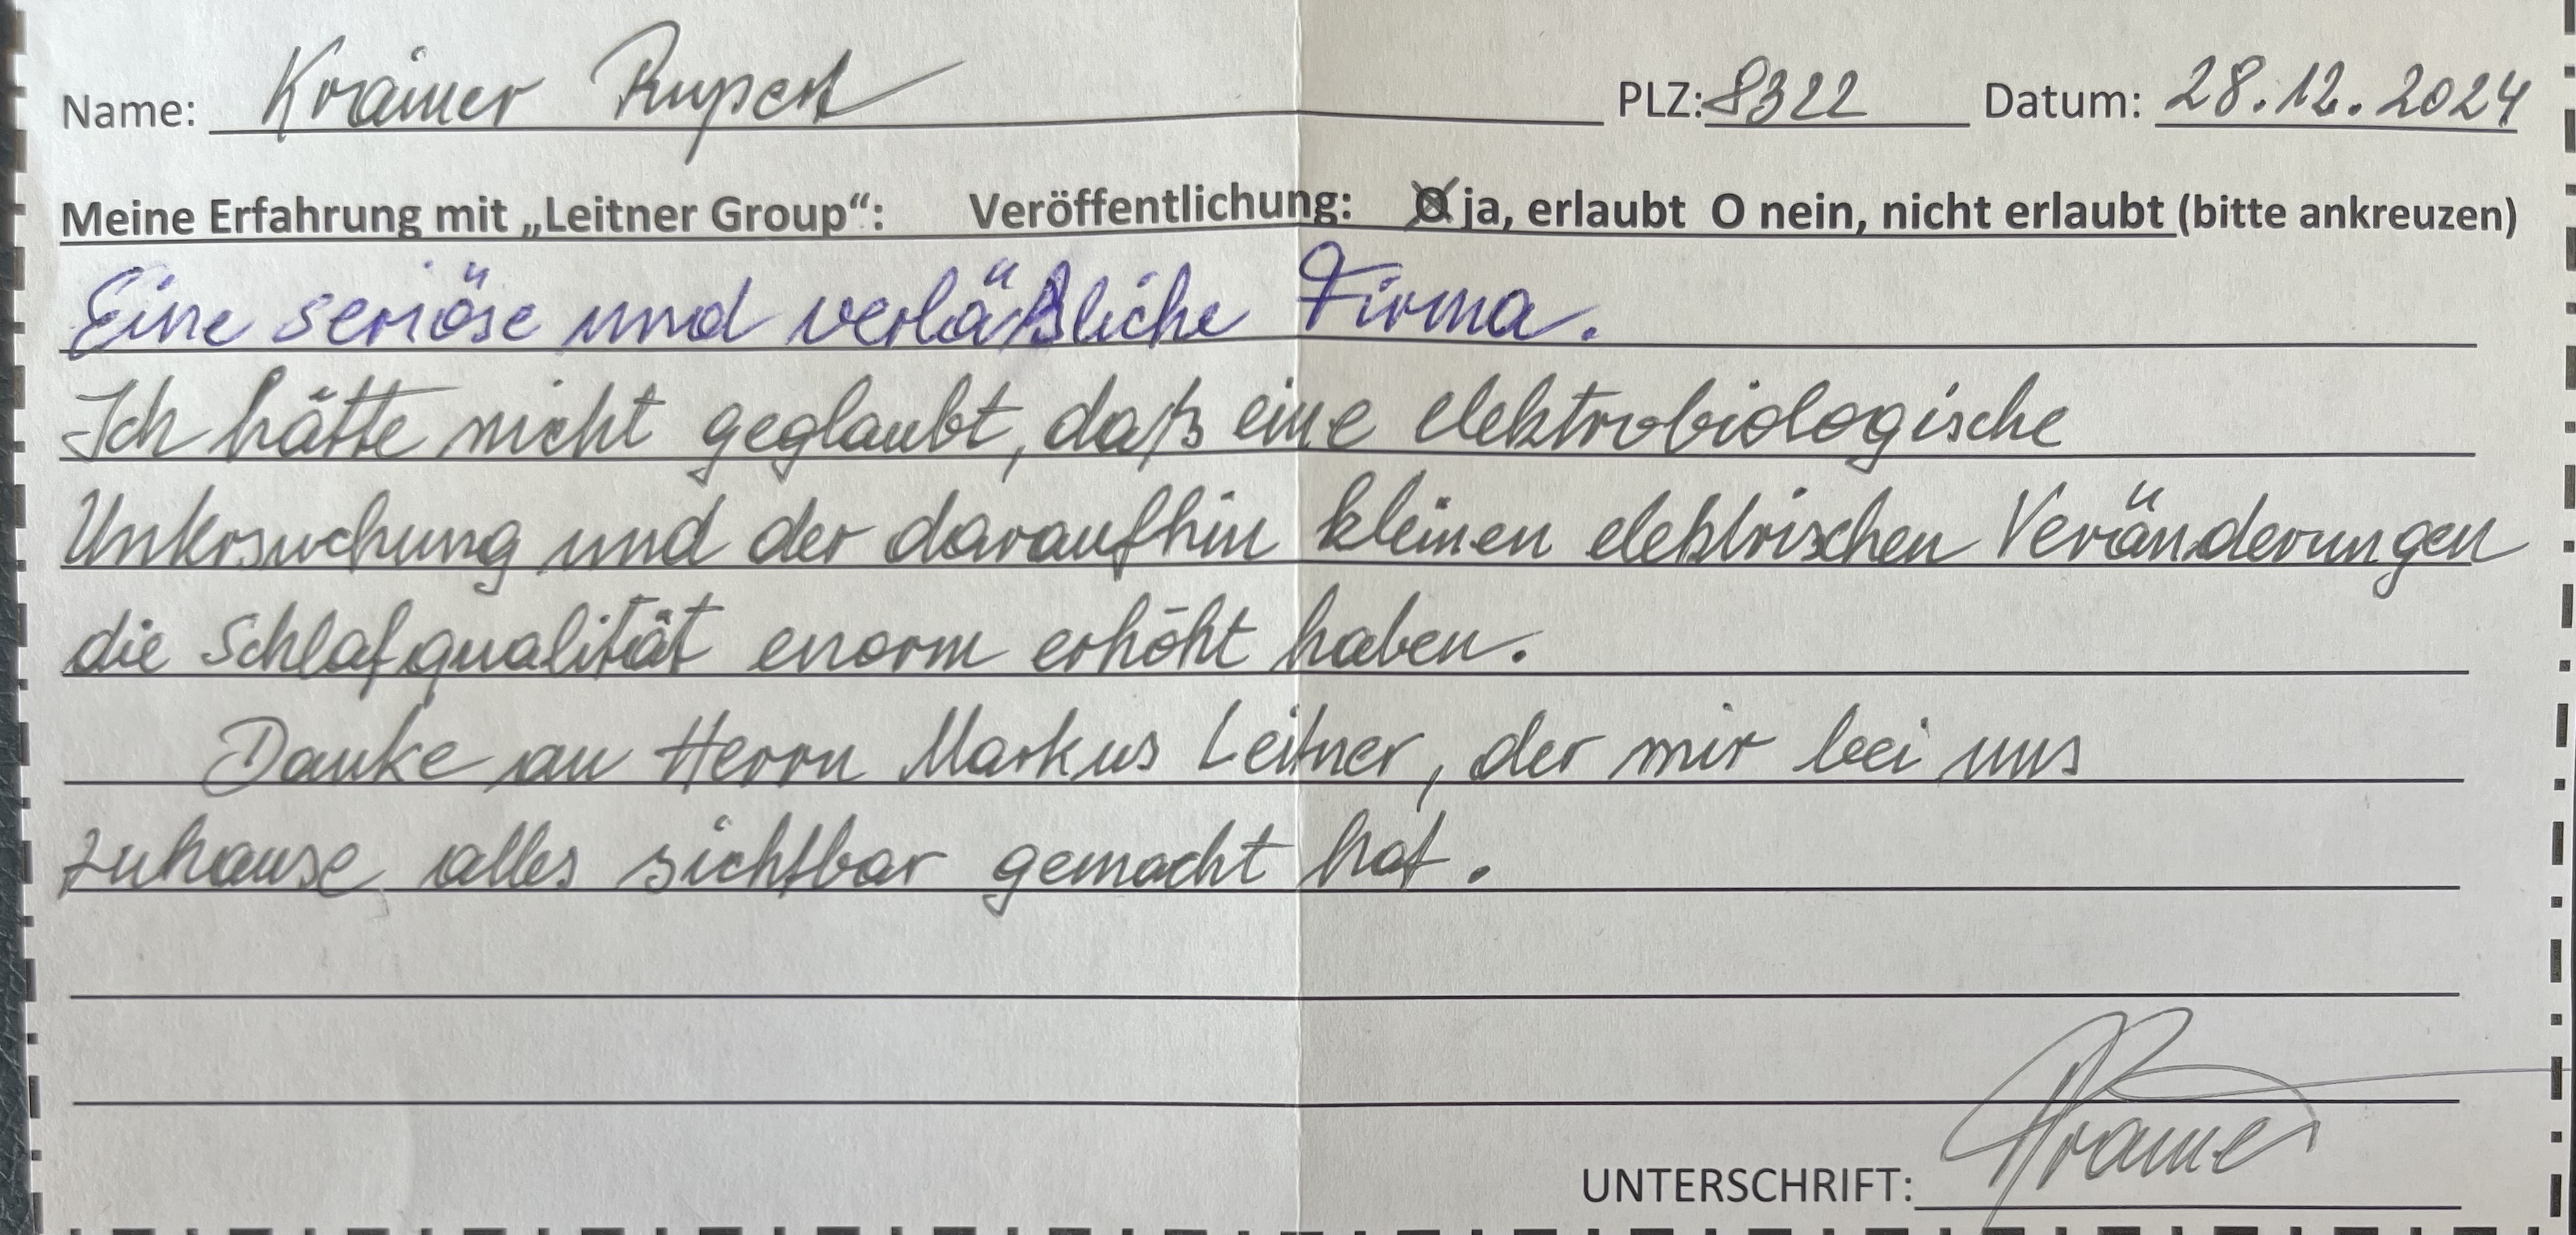 Name: Krainer Rupert PLZ: 8322 Datum: 28.12.2024
Meine Erfahrung mit „Leitner Group“: Veröffentlichung: O ja, erlaubt O nein, nicht erlaubt (bitte ankreuzen)
Eine seriöse und verläßliche Firma.
Ich hätte nicht geglaubt, daß eine elektrobiologische
Untersuchung und der daraufhin kleinen elektrischen Veränderungen
die Schlafqualität enorm erhöht haben.
Danke an Herrn Markus Leitner, der mir bei uns
zuhause alles sichtbar gemacht hat.
UNTERSCHRIFT: Krainer